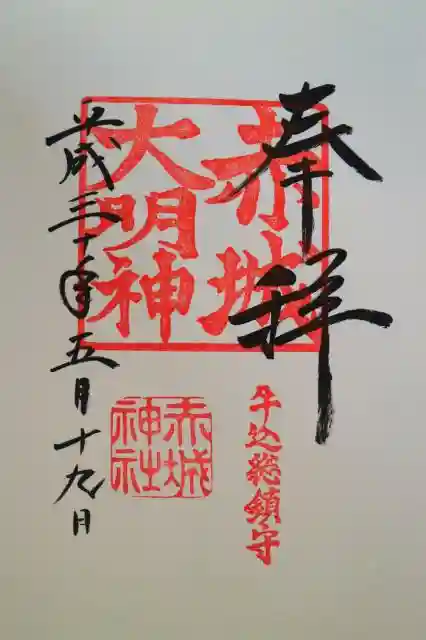 奉拝
赤城
大明神
牛込総鎮守
赤城
神社
平成三十年五月十九日